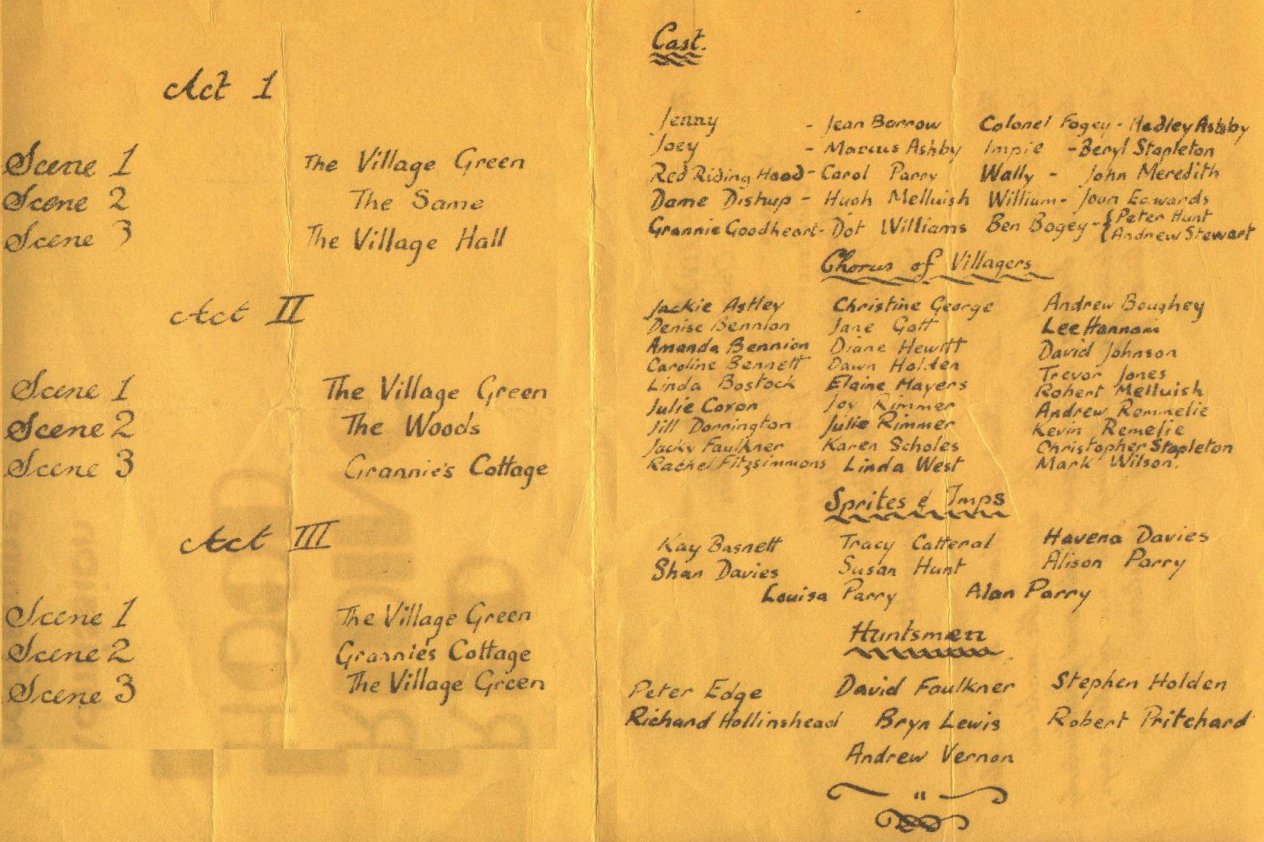 Act 1
Scene 1 The Village Green
Scene 2 The Same
Scene 3 The Village Hall
Act II
Scene 1 The Village Green
Scene 2 The Woods
Scene 3 Grannie's Cottage
Act III
Scene 1 The Village Green
Scene 2 Grannie's Cottage
Scene 3 The Village Green
Cast.
Jenny - Jean Barrow Colonel Fogey - Hadley Ashby
Joey - Marcus Ashby Impie - Beryl Stapleton
Red Riding Hood - Carol Parry Wally - John Meredith
Dame Dishup - Hugh Melluish William - Joan Edwards
Grannie Goodheart - Dot Williams Ben Bogey - { Peter Hunt
Andrew Stewart
Chorus of Villagers
Jackie Astley Christine George Andrew Boughey
Denise Bennion Jane Gott Lee Hannam
Amanda Bennion Diane Hewitt David Johnson
Caroline Bennett Dawn Holden Trevor Jones
Linda Bostock Elaine Mayers Robert Melluish
Julie Coron Joy Rimmer Andrew Rommelie
Jill Dorrington Julie Rimmer Kevin Remelie
Jacky Faulkner Karen Scholes Christopher Stapleton
Rachel Fitzsimmons Linda West Mark Wilson.
Sprites & Imps
Kay Basnett Tracy Catteral Havena Davies
Shan Davies Susan Hunt Alison Parry
Louisa Parry Alan Parry
Huntsmen
Peter Edge David Faulkner Stephen Holden
Richard Hollinshead Bryn Lewis Robert Pritchard
Andrew Vernon
HOOD
RIDING
RED